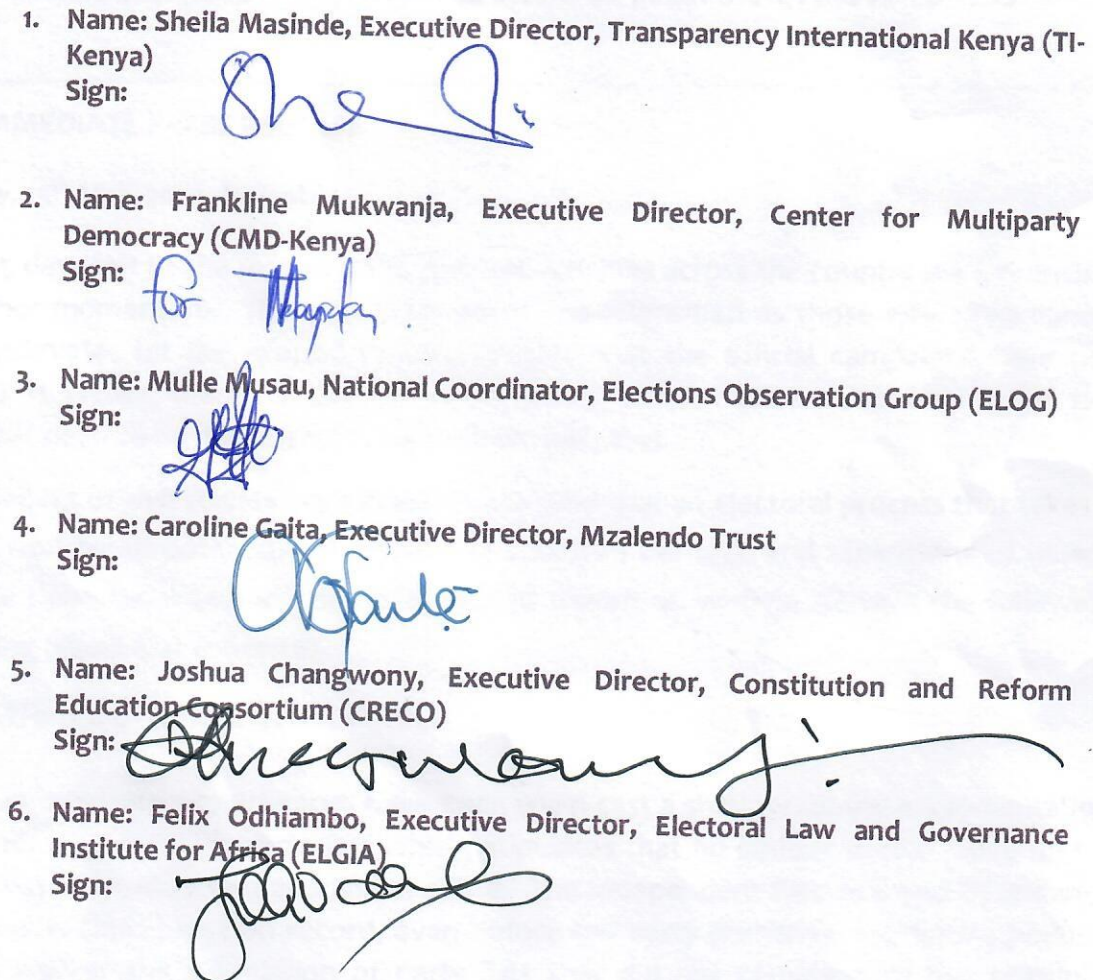 1. Name: Sheila Masinde, Executive Director, Transparency International Kenya (TI-
Kenya)
Sign:
2. Name: Frankline Mukwanja, Executive Director, Center for Multiparty
Democracy (CMD-Kenya)
Sign: for
3. Name: Mulle Musau, National Coordinator, Elections Observation Group (ELOG)
Sign:
4. Name: Caroline Gaita, Executive Director, Mzalendo Trust
Sign:
5. Name: Joshua Changwony, Executive Director, Constitution and Reform
Education Consortium (CRECO)
Sign:
6. Name: Felix Odhiambo, Executive Director, Electoral Law and Governance
Institute for Africa (ELGIA)
Sign: